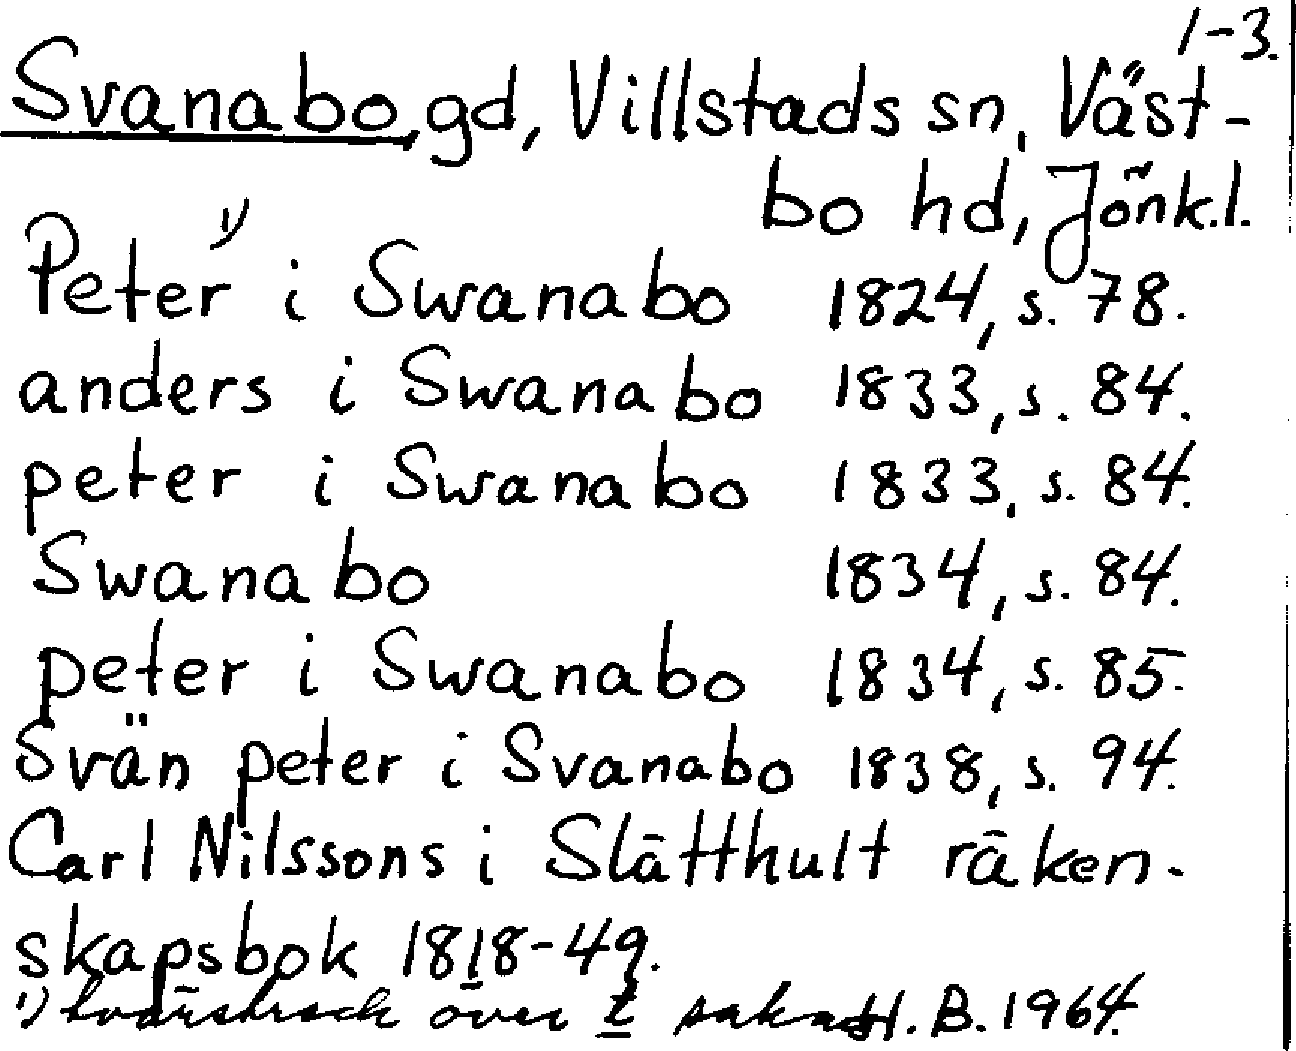 1-3.
Svanabo, gd, Villstads sn, Väst-
bo hd, Jönk.l.
Peter¹⁾ i Swanabo 1824, s. 78.
anders i Swanabo 1833, s. 84.
peter i Swanabo 1833, s. 84.
Swanabo 1834, s. 84.
peter i Swanabo 1834, s. 85.
Svän peter i Svanabo 1838, s. 94.
Carl Nilssons i Slätthult räken-
skapsbok 1818-49.
¹⁾ tvärstreck över t saknas H. B. 1964.